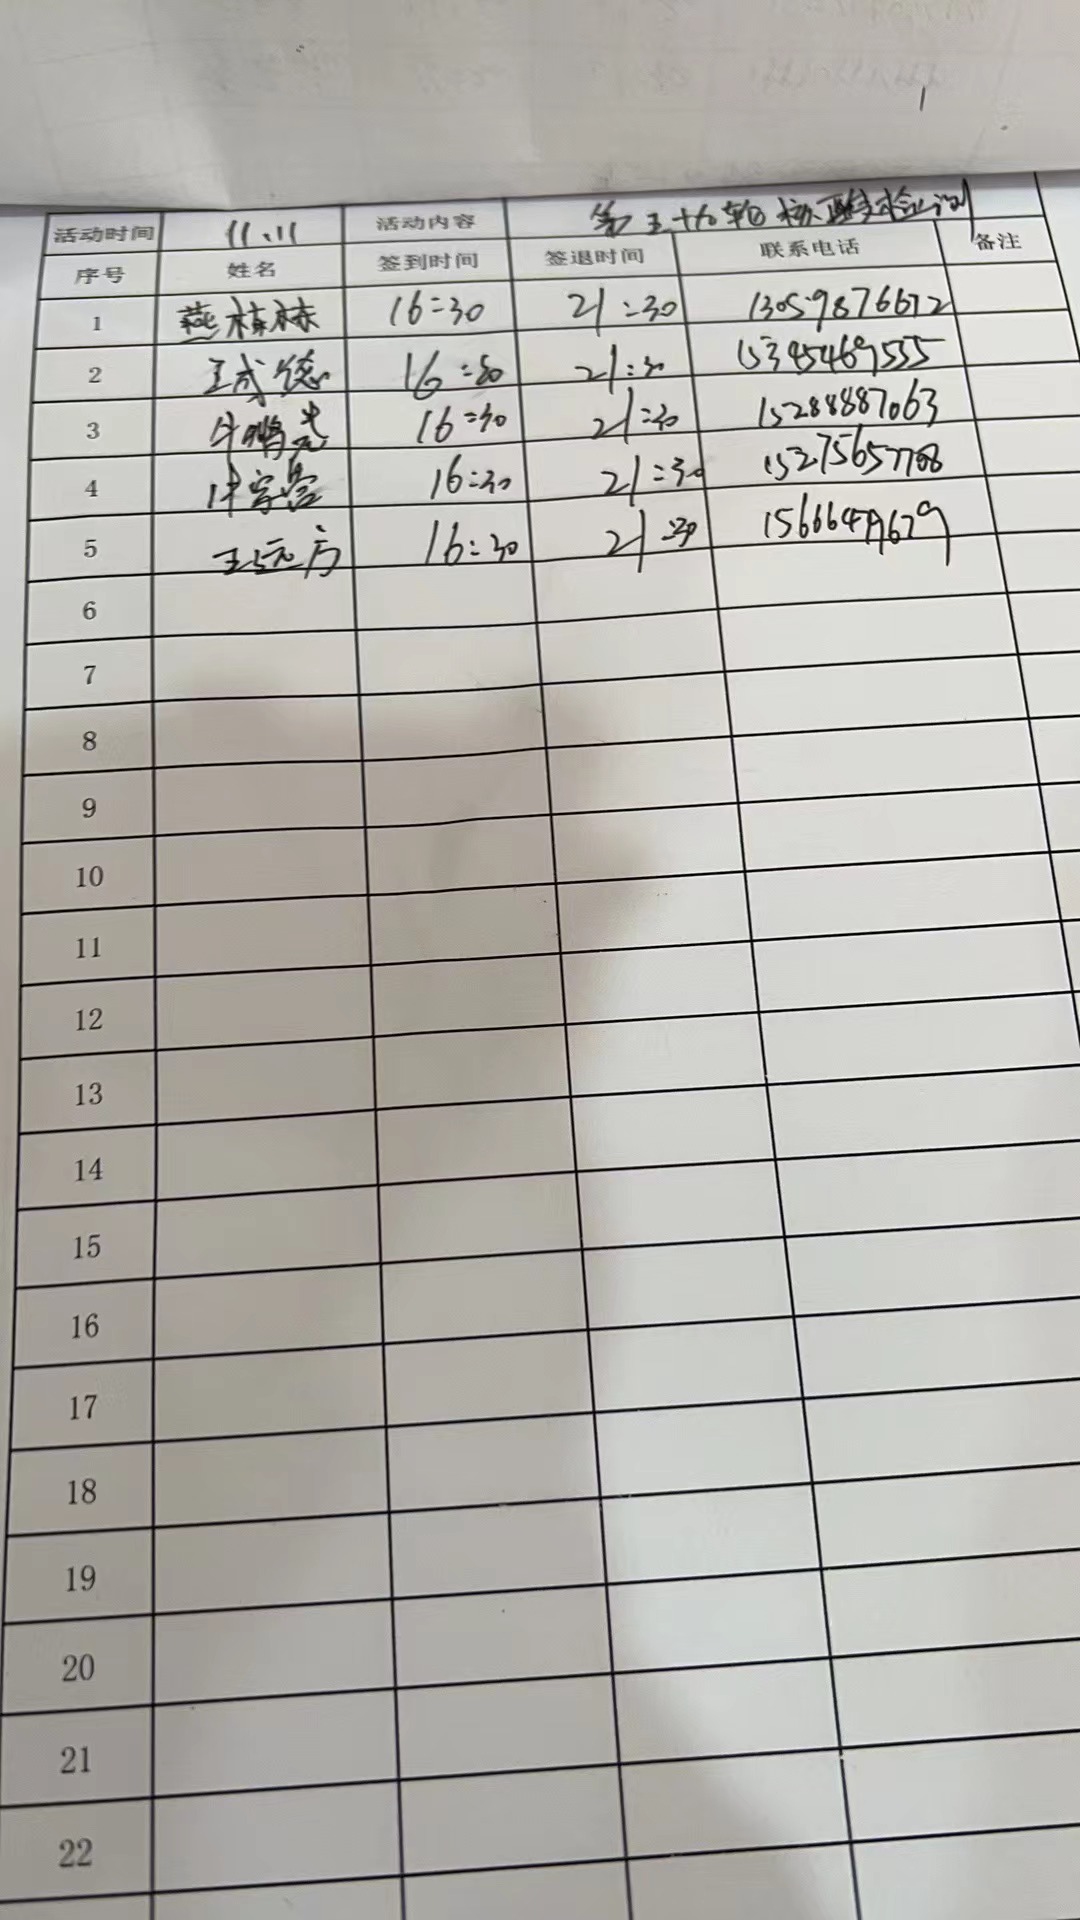 活动时间 11.11 活动内容 第五十九轮核酸检测
序号 姓名 签到时间 签退时间 联系电话 备注
1 燕栋栋 16:30 21:30 13059876672
2 王成德 16:30 21:30 15345469555
3 牛鹏尧 16:30 21:30 15288887063
4 16:30 21:30 15275657708
5 王远方 16:30 21:30
6
7
8
9
10
11
12
13
14
15
16
17
18
19
20
21
22